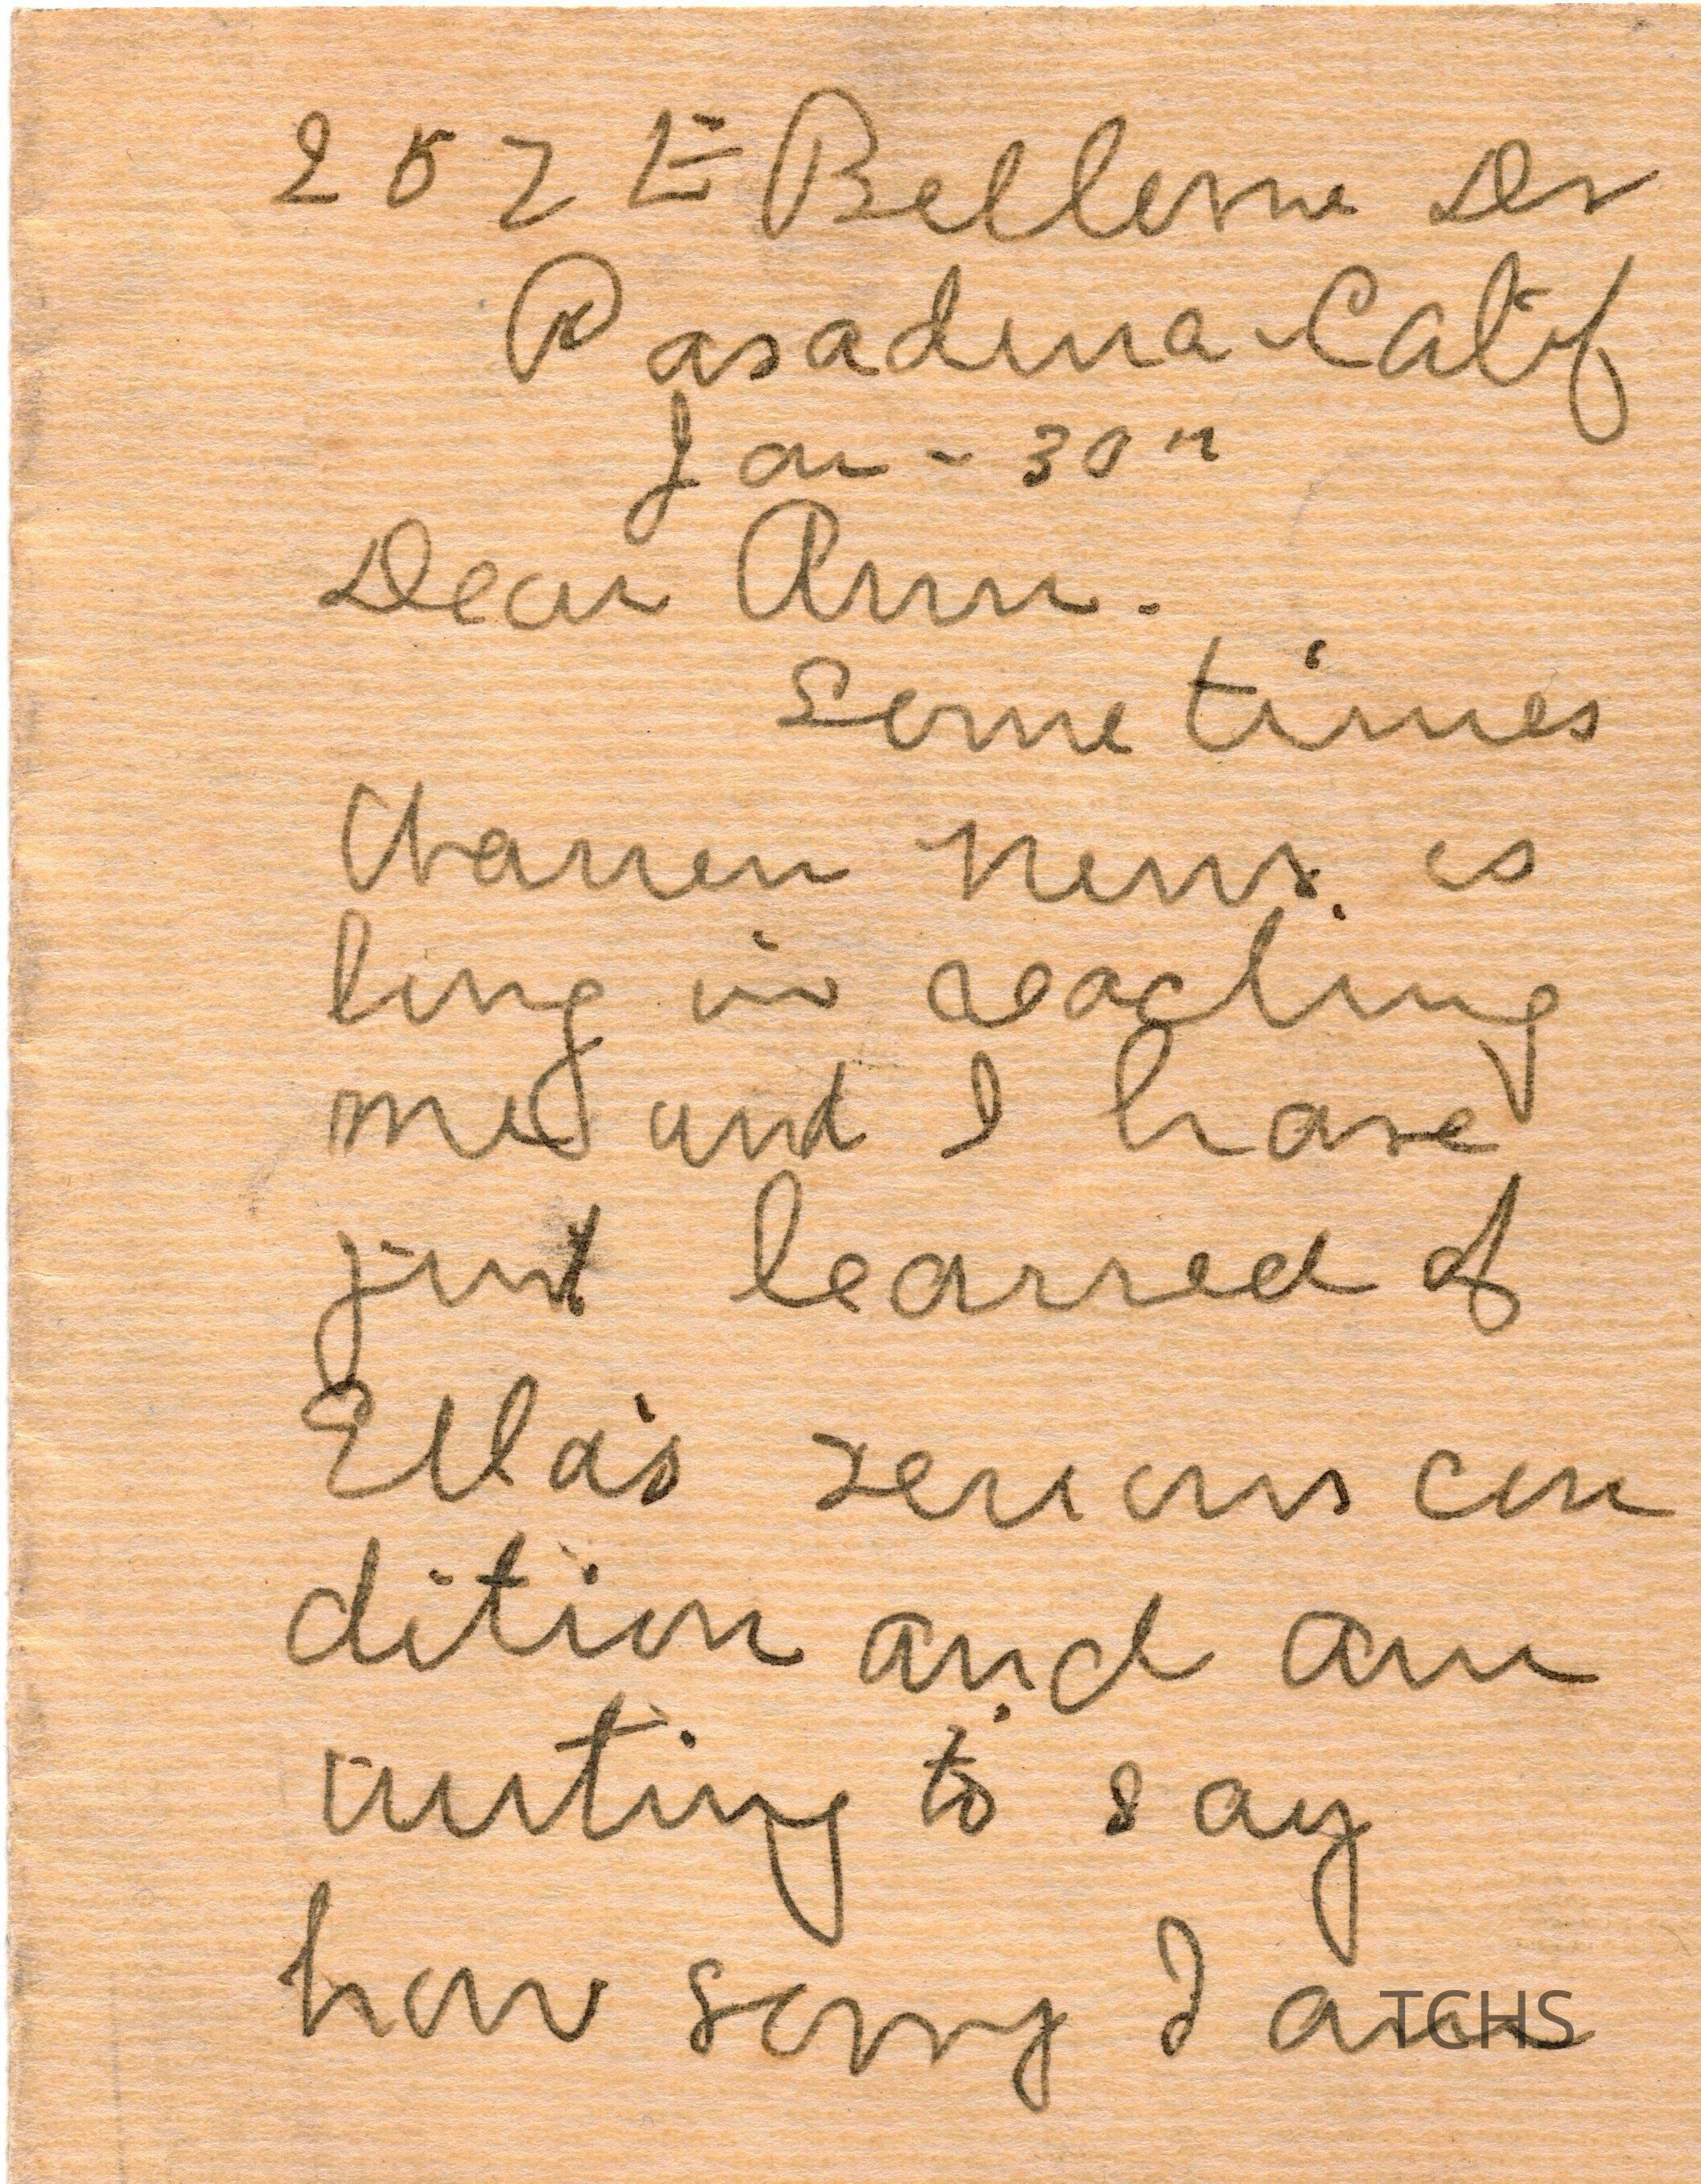 252 E Bellevue Dr
Pasadena - Calif
Jan - 30"
Dear Ann.
Sometimes
Warren news is
long in reaching
me and I have
just learned of
Ella's serious con
dition and am
writing to say
how sorry I am
TCHS